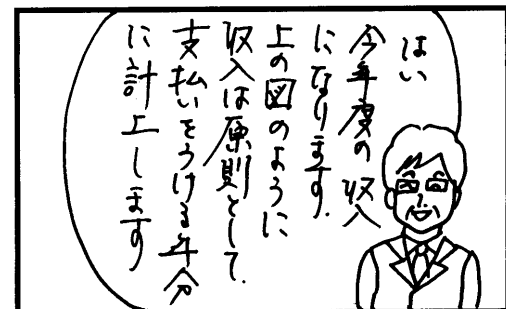 はい
今年度の収入
になります.
上の図のように
収入は原則として.
支払いをうける年分
に計上します